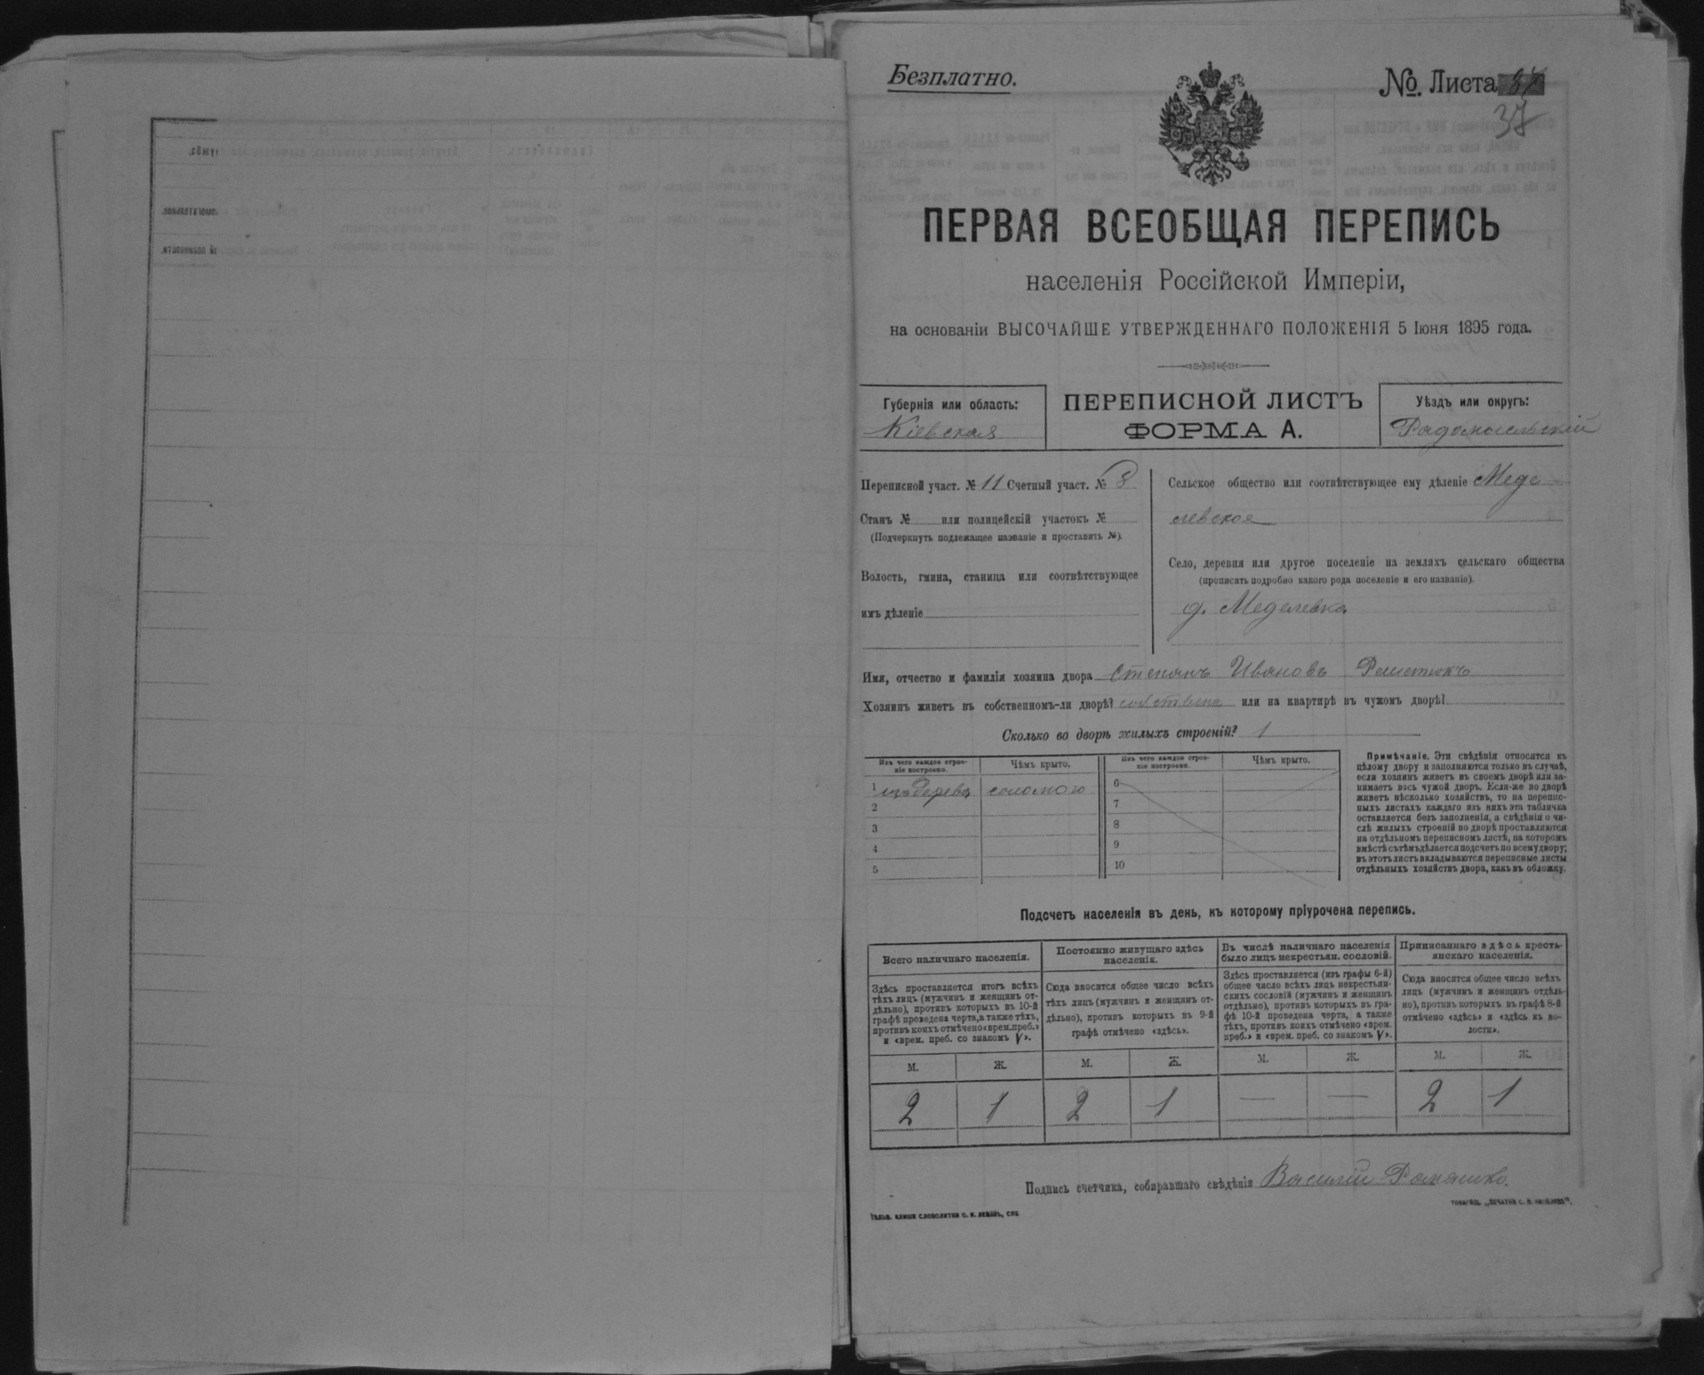 Безплатно.
№ Листа
37
ПЕРВАЯ ВСЕОБЩАЯ ПЕРЕПИСЬ
населенія Россійской Имперіи,
на основаніи ВЫСОЧАЙШЕ УТВЕРЖДЕННАГО ПОЛОЖЕНІЯ 5 Іюня 1895 года.
Губернія или область:
Кіевская
ПЕРЕПИСНОЙ ЛИСТЪ
ФОРМА А.
Уѣздъ или округъ:
Радомысльскій
Переписной участ. № 11 Счетный участ. № 8
Станъ № или полицейскій участокъ №
(Подчеркнуть подлежащее названіе и проставить №).
Волость, гмина, станица или соотвѣтствующее
имъ дѣленіе
Сельское общество или соотвѣтствующее ему дѣленіе Меде-
левское
Село, деревня или другое поселеніе на земляхъ сельскаго общества
(прописать подробно какого рода поселеніе и его названіе).
д. Меделевка
Имя, отчество и фамилія хозяина двора Степанъ Ивановъ
Хозяинъ живетъ въ собственномъ-ли дворѣ? или на квартирѣ въ чужомъ дворѣ?
Сколько во дворѣ жилыхъ строеній? 1
Изъ чего каждое строе-
ніе построено.
Чѣмъ крыто.
1 изъ дерева соломою
2
3
4
5
Изъ чего каждое строе-
ніе построено.
Чѣмъ крыто.
6
7
8
9
10
Примѣчаніе. Эти свѣдѣнія относятся къ
цѣлому двору и заполняются только въ случаѣ,
если хозяинъ живетъ въ своемъ дворѣ или за-
нимаетъ весь чужой дворъ. Если-же во дворѣ
живетъ нѣсколько хозяйствъ, то на перепис-
ныхъ листахъ каждаго изъ нихъ эта табличка
оставляется безъ заполненія, а свѣдѣнія о чи-
слѣ жилыхъ строеній во дворѣ проставляются
на отдѣльномъ переписномъ листѣ, на которомъ
вмѣстѣ съ тѣмъ дѣлается подсчетъ по всему двору;
въ этотъ листъ вкладываются переписные листы
отдѣльныхъ хозяйствъ двора, какъ въ обложку.
Подсчетъ населенія въ день, къ которому пріурочена перепись.
Всего наличнаго населенія.
Здѣсь проставляется итогъ всѣхъ
тѣхъ лицъ (мужчинъ и женщинъ от-
дѣльно), противъ которыхъ въ 10-й
графѣ проведена черта, а также тѣхъ,
противъ коихъ отмѣчено «врем. преб.»
и «врем. преб. со знакомъ V».
М. Ж.
2 1
Постоянно живущаго здѣсь
населенія.
Сюда вносится общее число всѣхъ
тѣхъ лицъ (мужчинъ и женщинъ от-
дѣльно), противъ которыхъ въ 9-й
графѣ отмѣчено «здѣсь».
М. Ж.
2 1
Въ числѣ наличнаго населенія
было лицъ некрестьян. сословій.
Здѣсь проставляется (изъ графы 6-й)
общее число всѣхъ лицъ некрестьян-
скихъ сословій (мужчинъ и женщинъ
отдѣльно), противъ которыхъ въ гра-
фѣ 10-й проведена черта, а также
тѣхъ, противъ коихъ отмѣчено «врем.
преб.» и «врем. преб. со знакомъ V».
М. Ж.
— —
Приписаннаго здѣсь кресть-
янскаго населенія.
Сюда вносится общее число всѣхъ
лицъ (мужчинъ и женщинъ отдѣль-
но), противъ которыхъ въ графѣ 8-й
отмѣчено «здѣсь» и «здѣсь къ во-
лости».
М. Ж.
2 1
Подпись счетчика, собиравшаго свѣдѣнія Василій Ромашко.